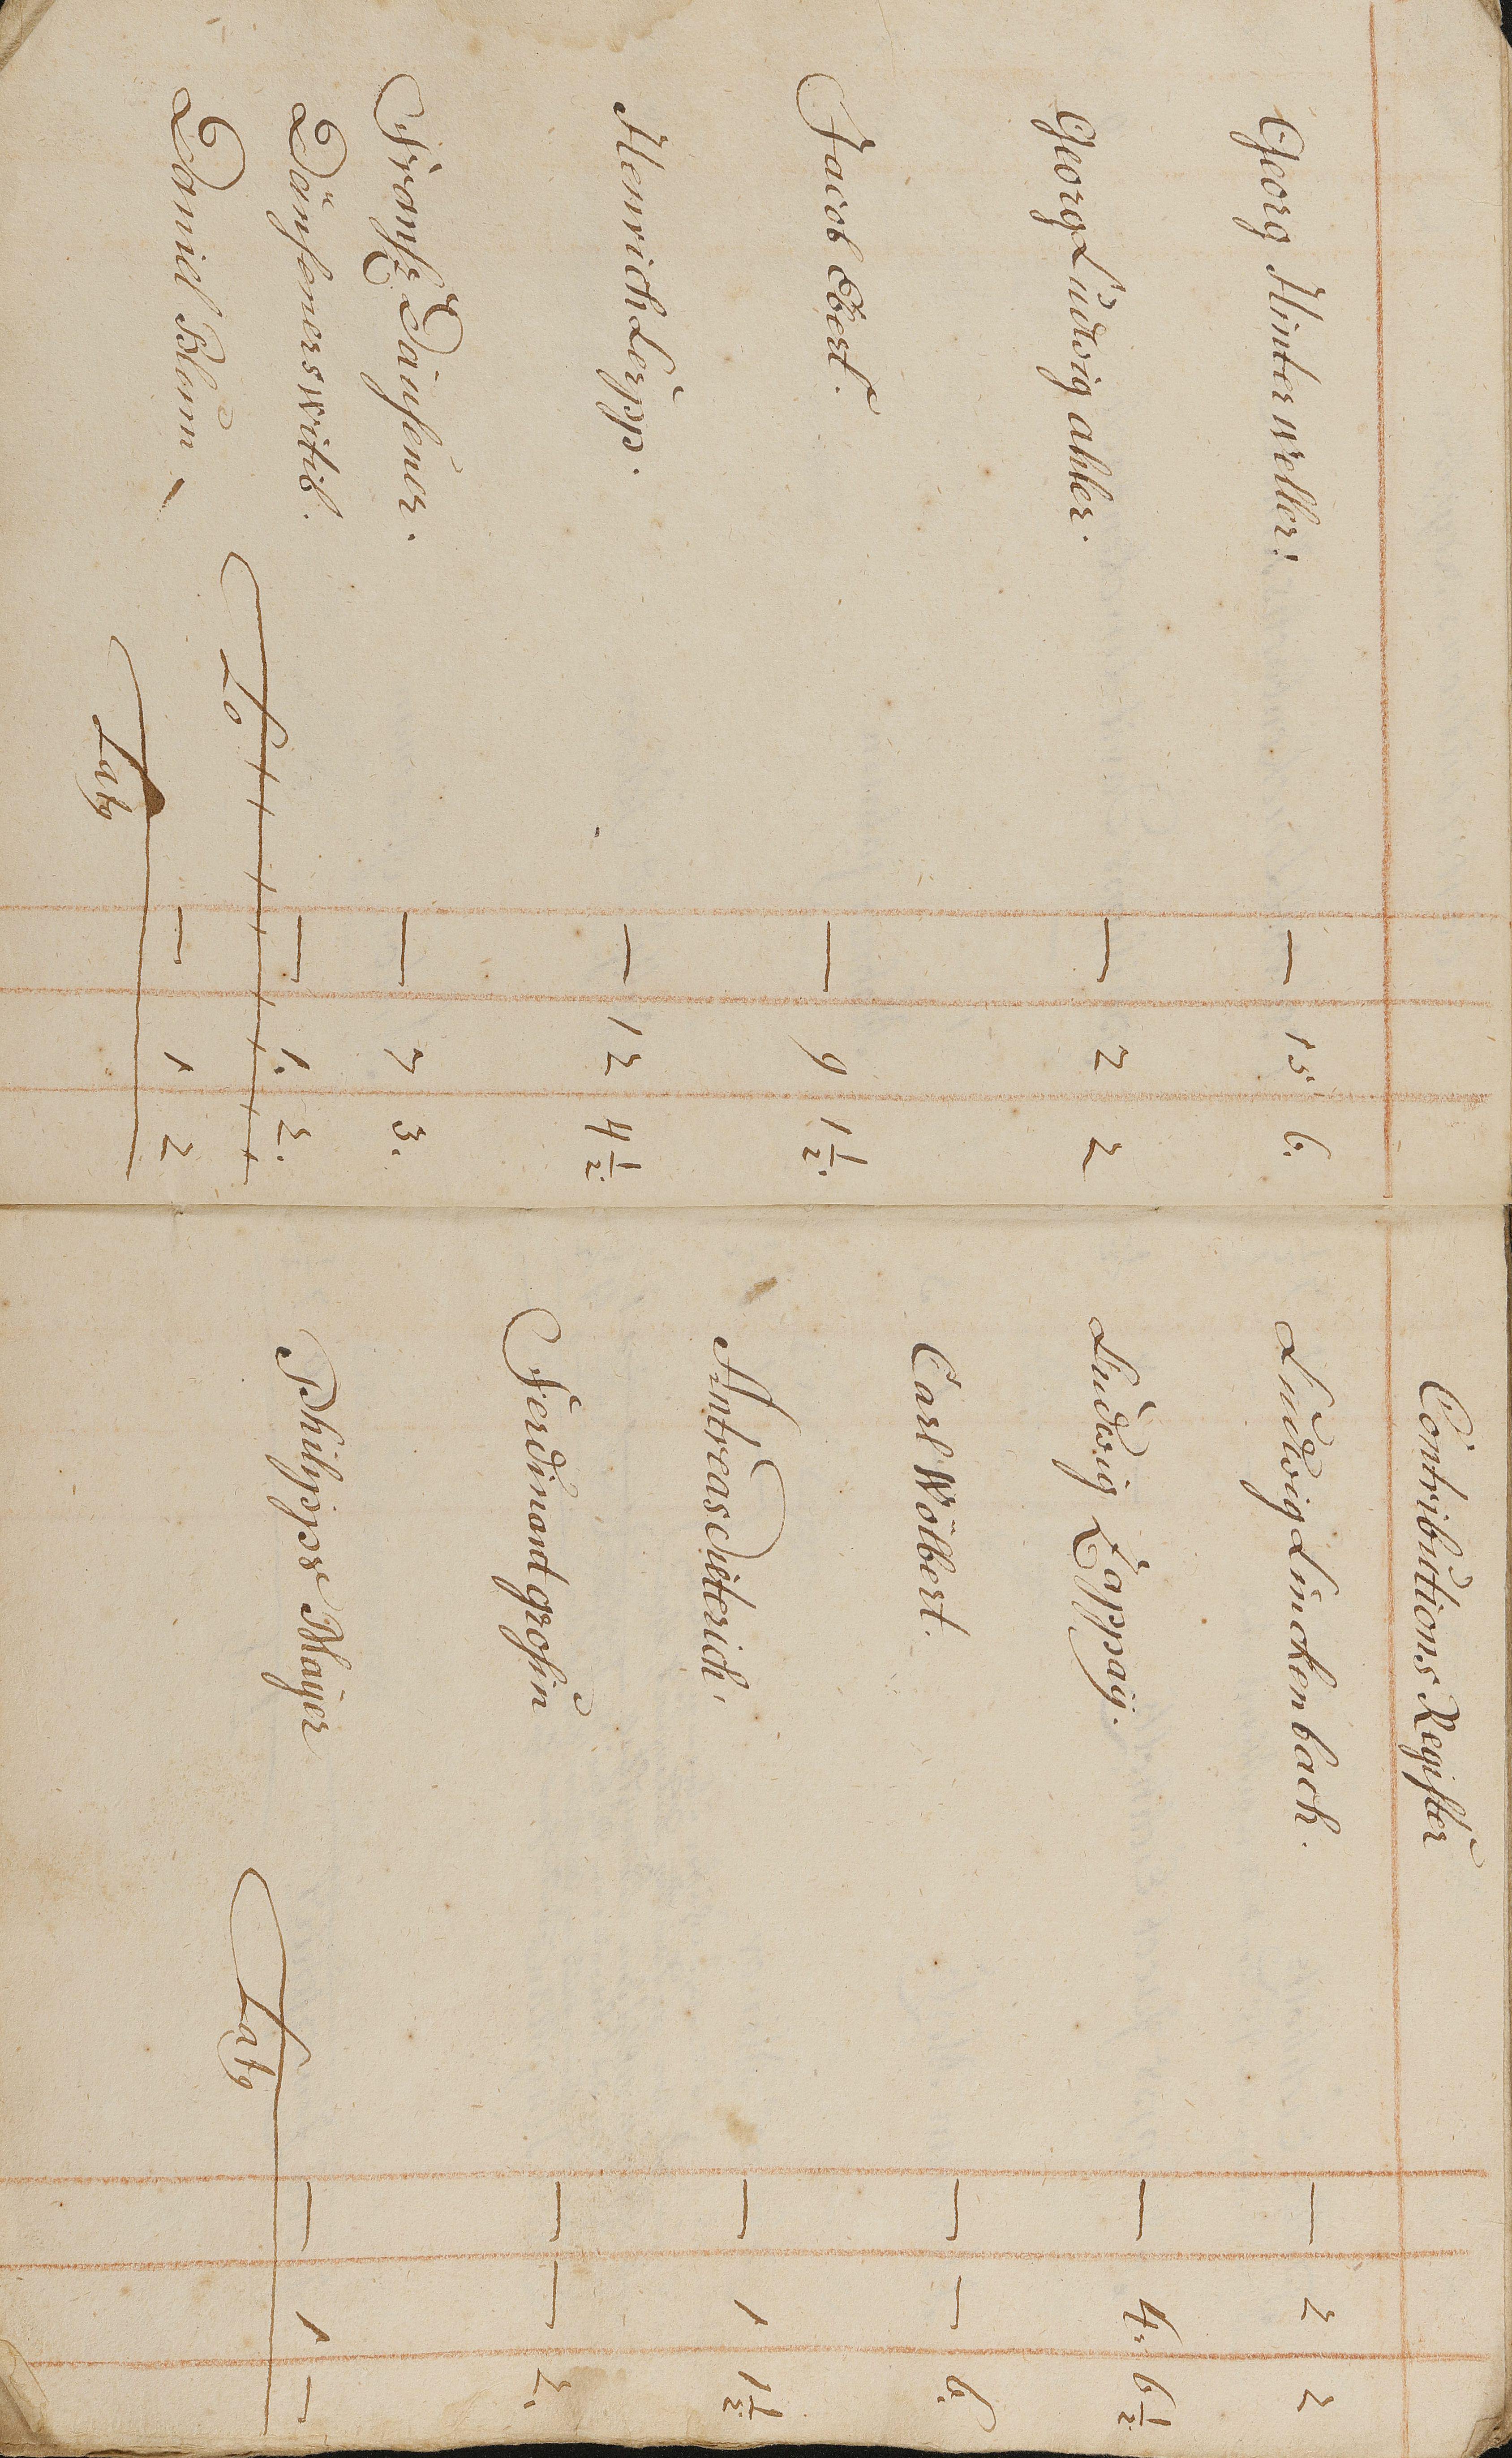 Georg Hinterweller: — 15 6.
Georg Ludwig ahler. — 2 2
Jacob Ebert. — 9 1½.
Henrich Leÿpp. — 12 4½.
Frantz Dänsener. — 7 3.
Dänseners wittib. — 1. 2.
Daniel Blum — 1 2
Latz
Contributions Register
Ludwig Linckenbach. — 2 2
Ludwig Lappaÿ. — 4. 6½.
Carl Wölbert. — — 6.
Antreas Dieterich. — 1 1½.
Ferdinant großin — — 2.
Philipps Mayer — 1 —
Latz